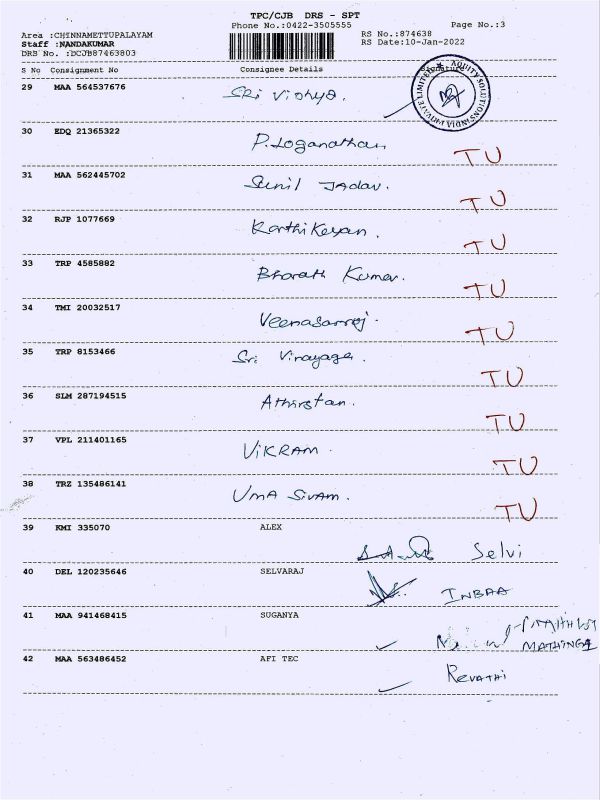 TPC/CJB DRS - SPT
Phone No.:0422-3505555 Page No.:3
Area :CHINNAMETTUPALAYAM RS No.:874638
Staff :NANDAKUMAR RS Date:10-Jan-2022
DRS No. :DCJB87463803
S No Consignment No Consignee Details Signature
AQUITY SOLUTIONS INDIA PRIVATE LIMITED
29 MAA 564537676 Sri Vidhya.
30 EDQ 21365322 P.Loganathan TU
31 MAA 562445702 Sunil Jadav. TU
32 RJP 1077669 Karthikeyan. TU
33 TRP 4585882 Bharath Kumar. TU
34 TMI 20032517 Veenasanroj. TU
35 TRP 8153466 Sri Vinayaga. TU
36 SLM 287194515 TU
37 VPL 211401165 VIKRAM. TU
38 TRZ 135486141 UMA SIVAM. TU
39 KMI 335070 ALEX Selvi
40 DEL 120235646 SELVARAJ INBAA
41 MAA 941468415 SUGANYA
42 MAA 563486452 AFI TEC Revathi